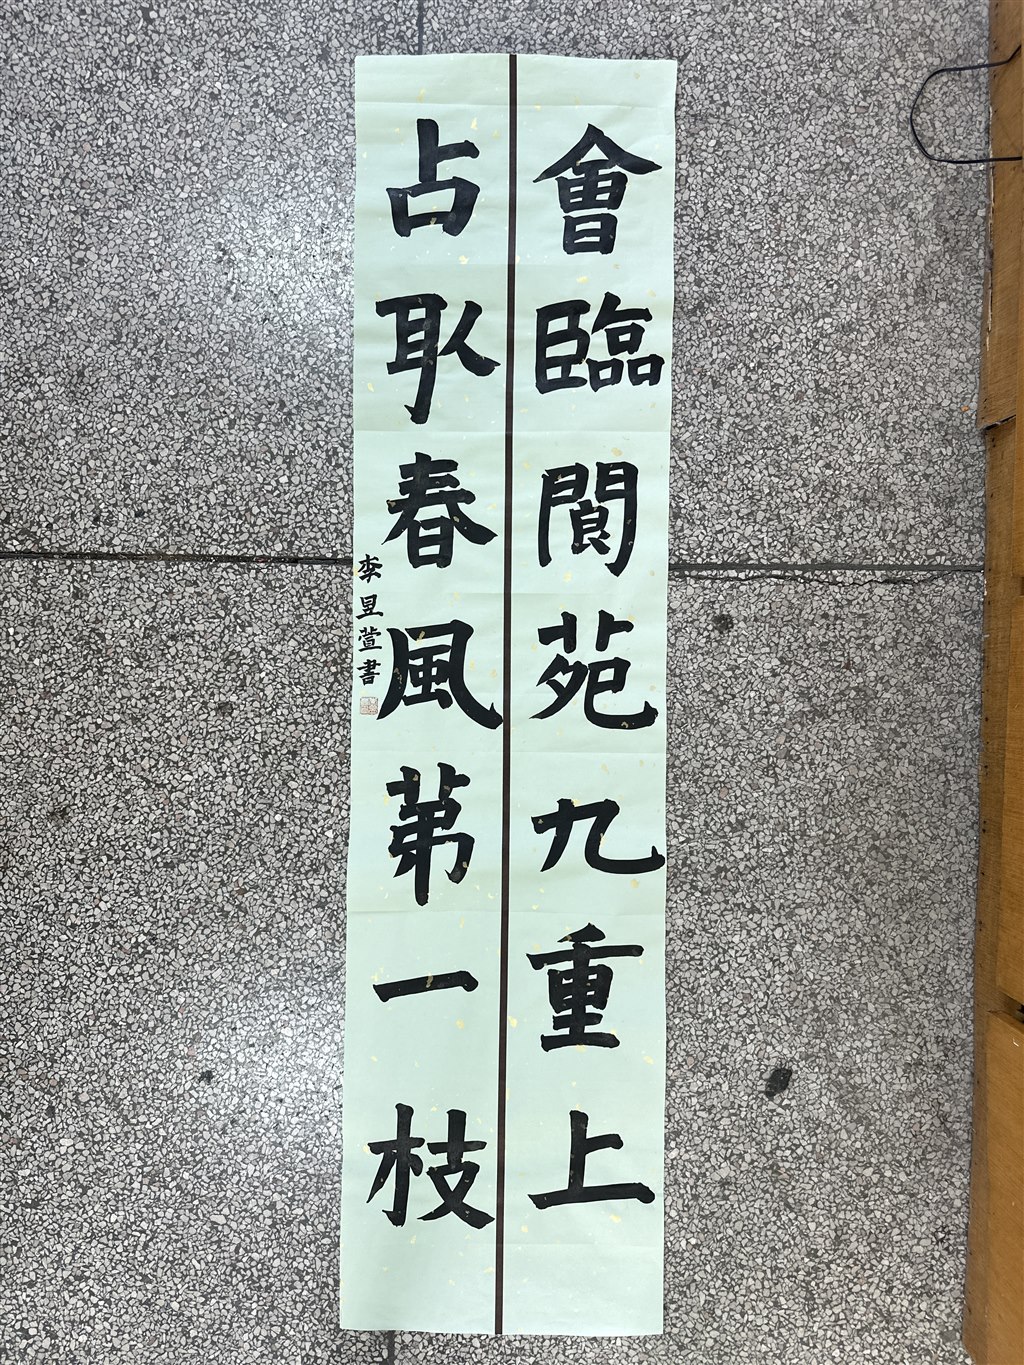 會臨閬苑九重上
占取春風第一枝
李昱萱書